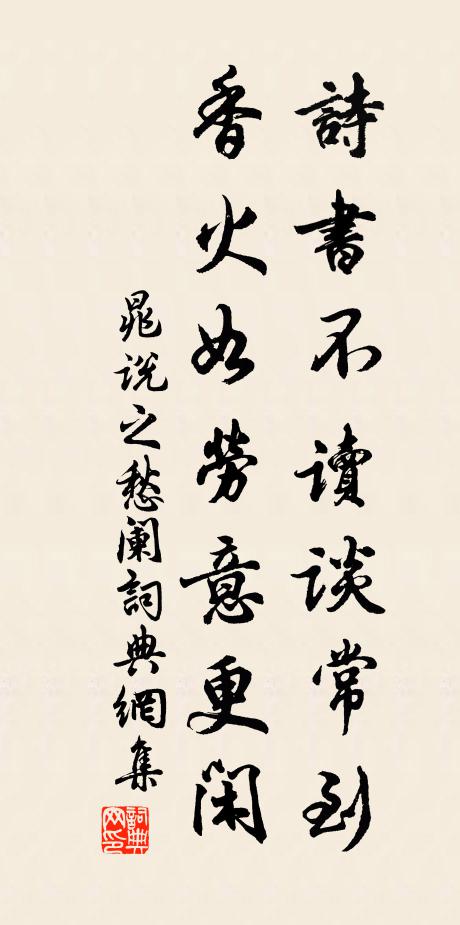 詩書不讀談常到
香火如勞意更閑
晁說之愁阑詞典網集
詞典网印